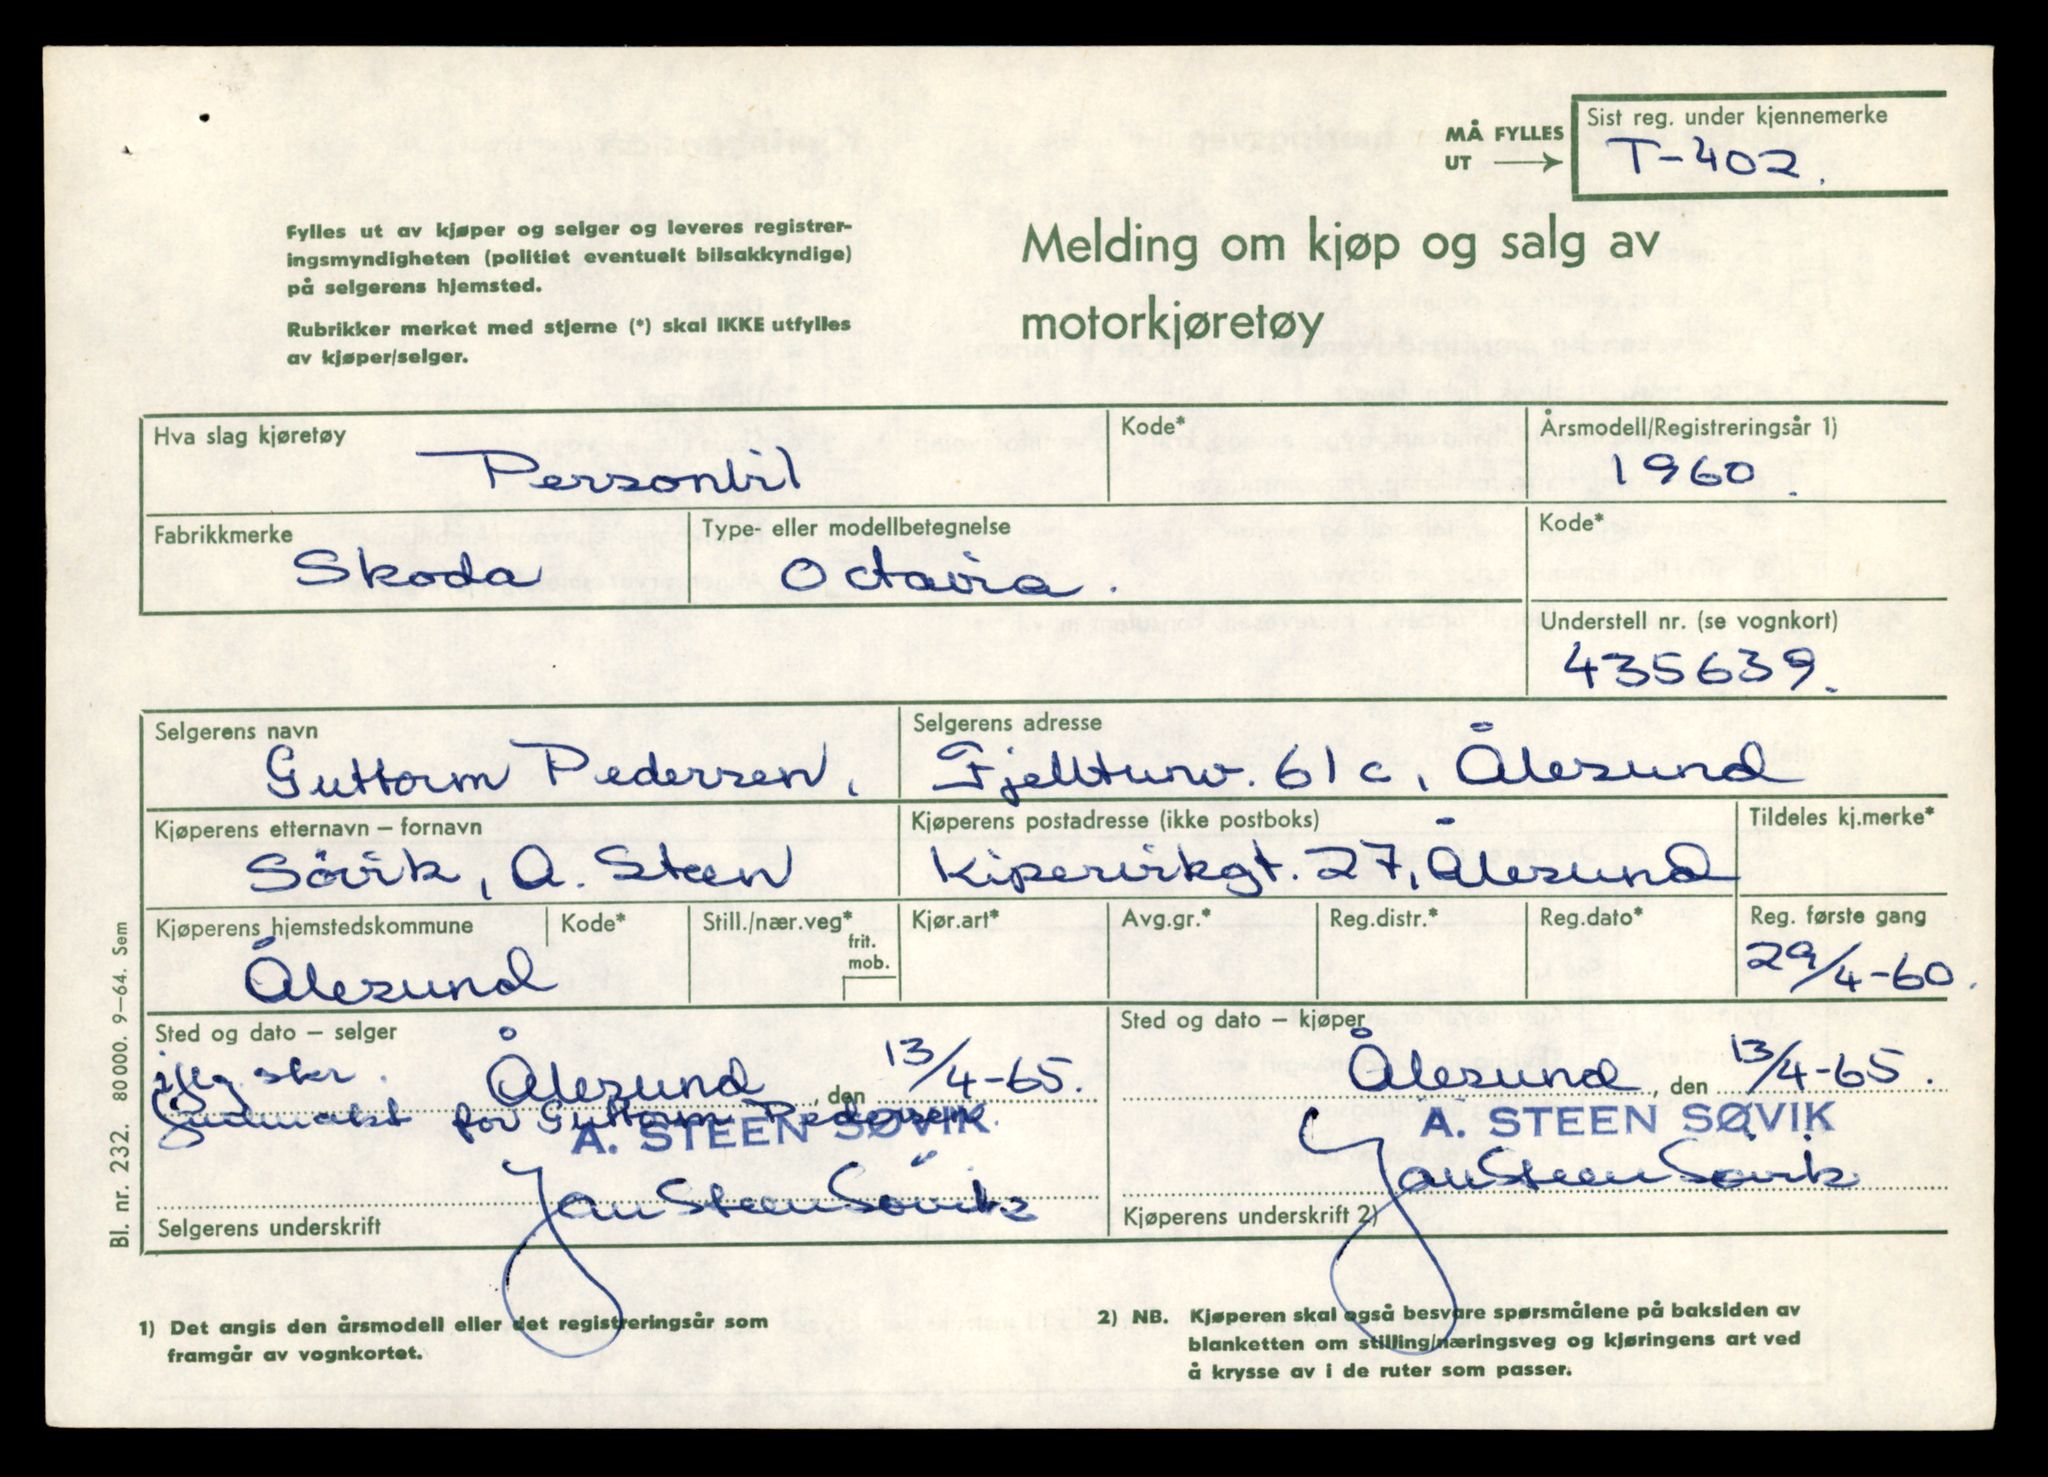 MÅ FYLLES
UT
Sist reg. under kjennemerke
T-402.
Fylles ut av kjøper og selger og leveres registrer-
ingsmyndigheten (politiet eventuelt bilsakkyndige)
på selgerens hjemsted.
Rubrikker merket med stjerne (*) skal IKKE utfylles
av kjøper/selger.
Melding om kjøp og salg av
motorkjøretøy
Hva slag kjøretøy
Personbil
Kode*
Årsmodell/Registreringsår 1)
1960.
Fabrikkmerke
Skoda
Type- eller modellbetegnelse
Octavia.
Kode*
Understell nr. (se vognkort)
435639.
Selgerens navn
Guttorm Pedersen,
Selgerens adresse
Fjelltunv. 61c, Ålesund
Kjøperens etternavn – fornavn
Sövik, A. Steen
Kjøperens postadresse (ikke postboks)
Kipervikgt. 27, Ålesund
Tildeles kj.merke*
Kjøperens hjemstedskommune
Ålesund
Kode*
Still./nær.veg*
frit.
mob.
Kjør.art*
Avg.gr.*
Reg.distr.*
Reg.dato*
Reg. første gang
29/4-60.
Sted og dato – selger
iflg. skr. Ålesund, den 13/4-65.
fullmakt for Guttorm Pedersen.
A. STEEN SØVIK
Jan Steen Søvik
Selgerens underskrift
Sted og dato – kjøper
Ålesund, den 13/4-65.
A. STEEN SØVIK
Jan Steen Søvik
Kjøperens underskrift 2)
1) Det angis den årsmodell eller det registreringsår som
framgår av vognkortet.
2) NB. Kjøperen skal også besvare spørsmålene på baksiden av
blanketten om stilling/næringsveg og kjøringens art ved
å krysse av i de ruter som passer.
Bl. nr. 232. 80 000. 9–64. Sem